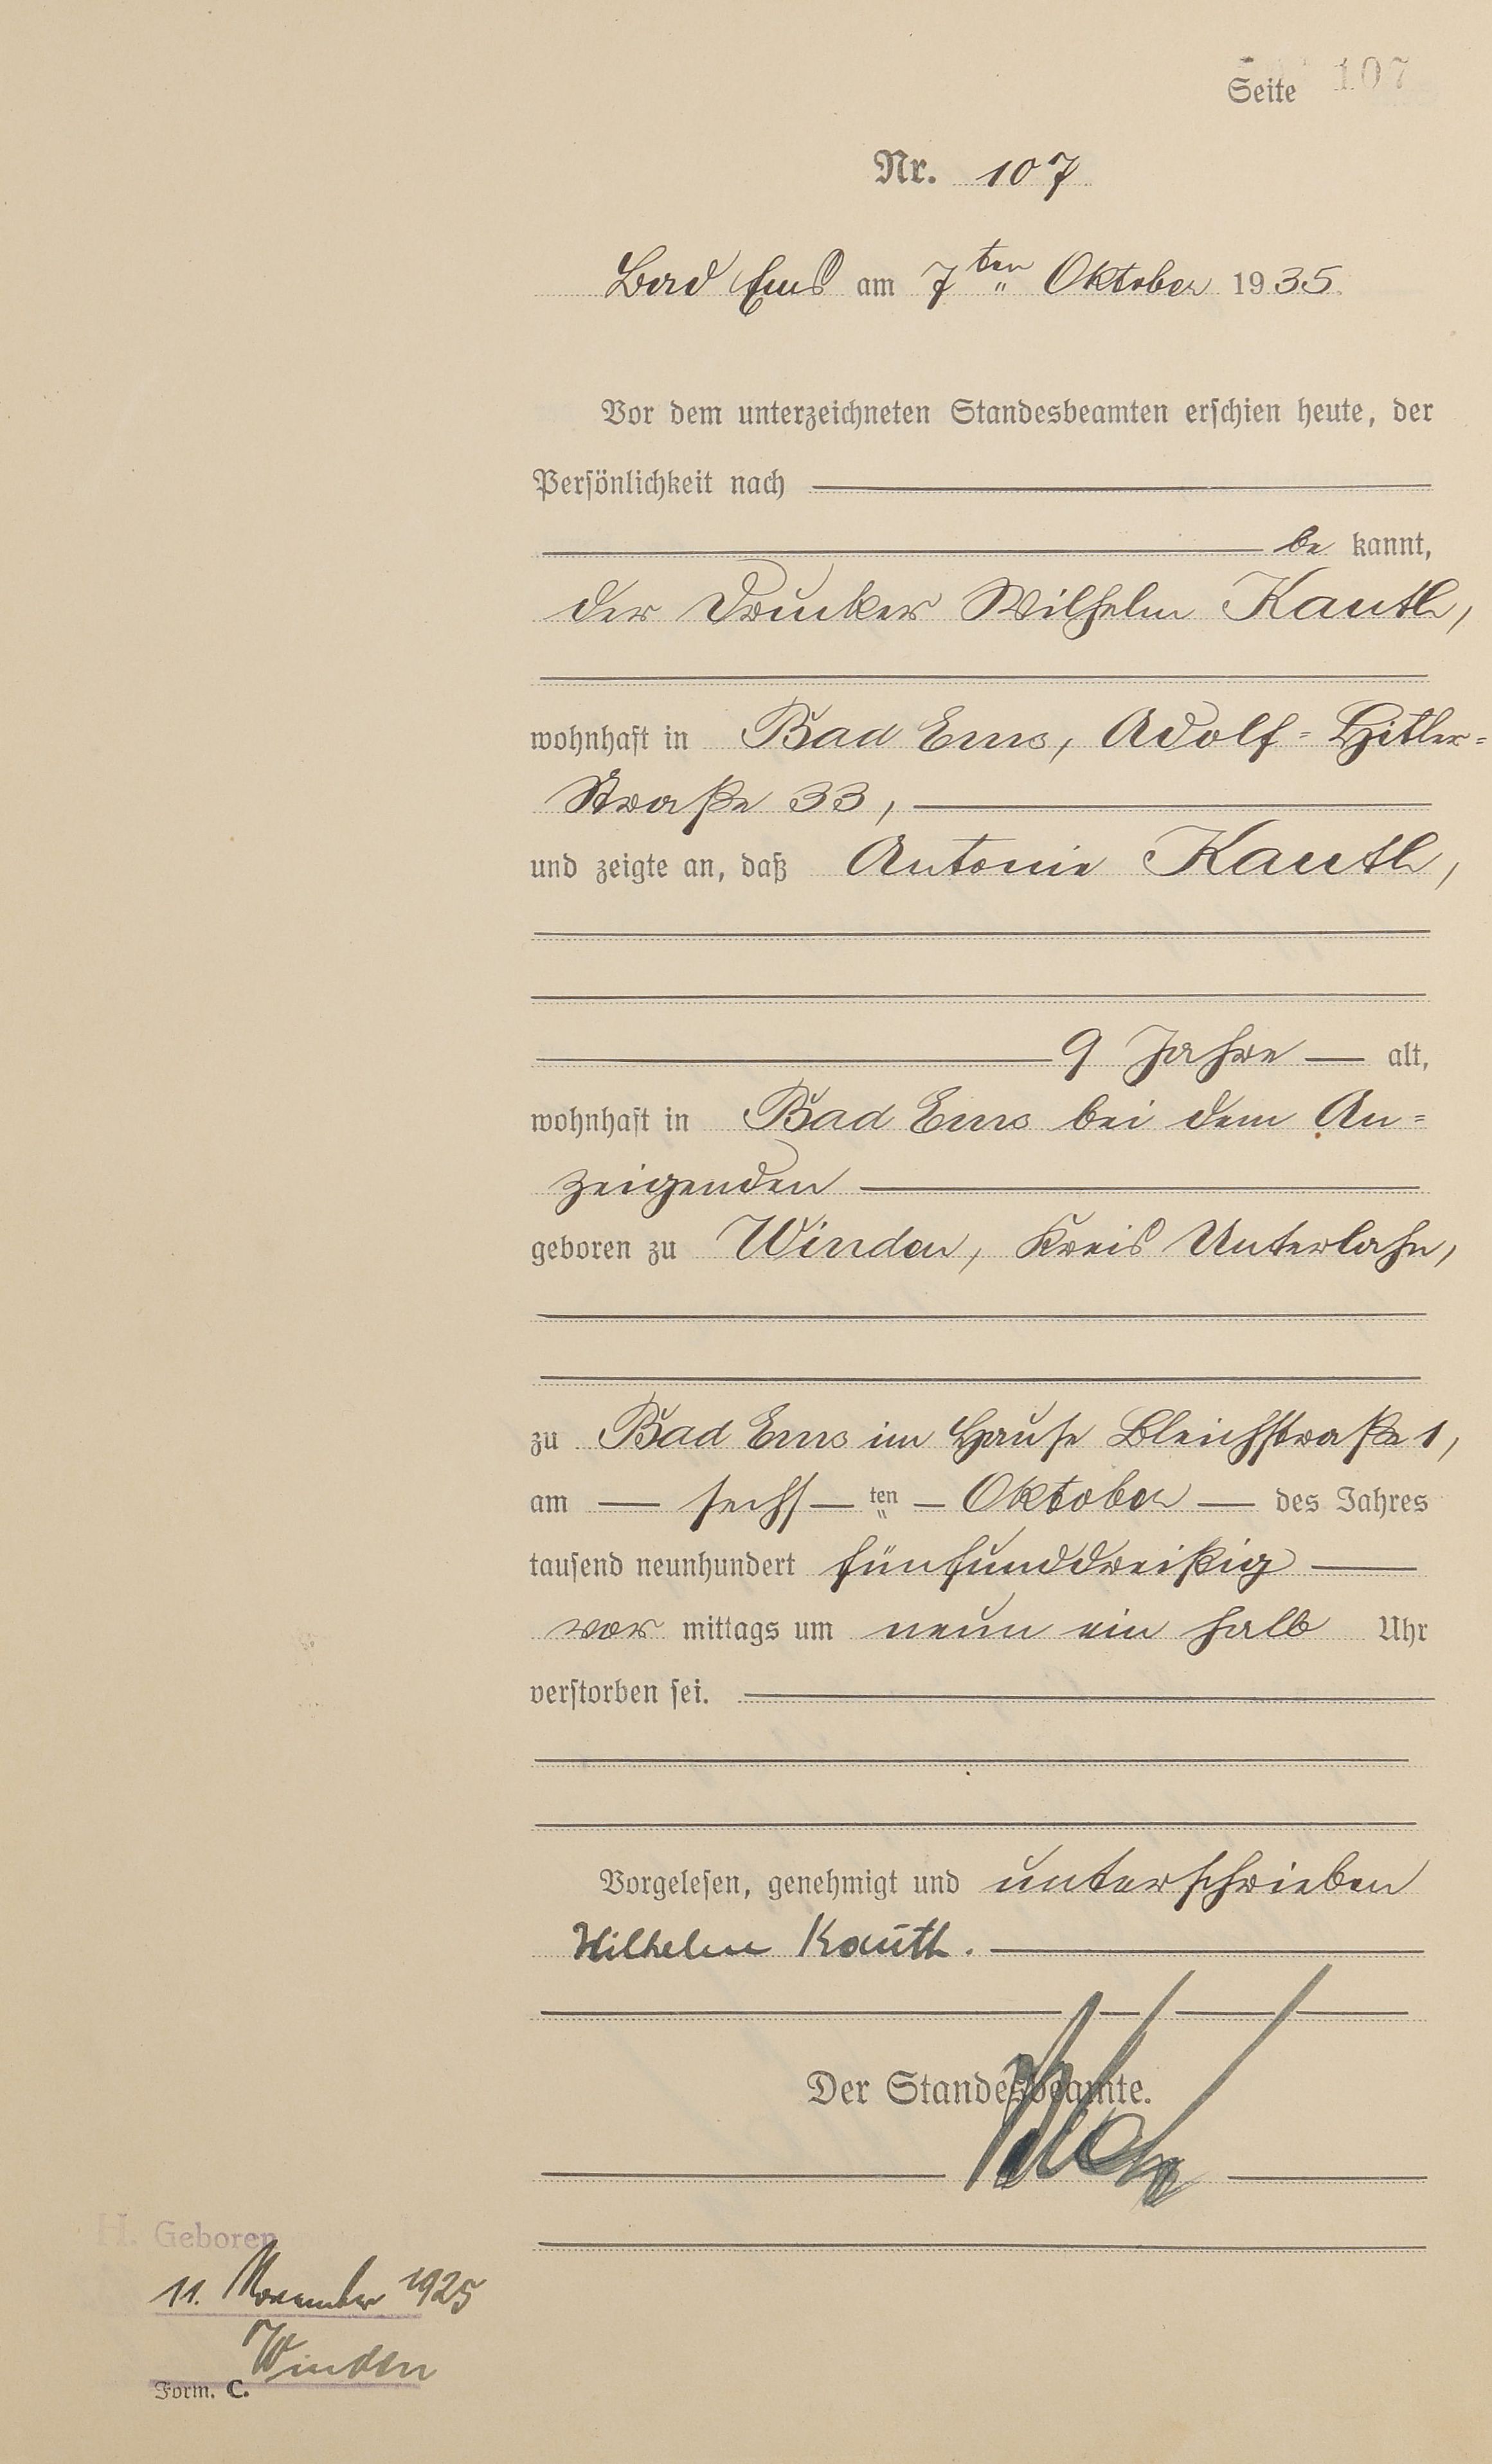 Seite 107
Nr. 107
Bad Ems am 7ten Oktober 1935.
Vor dem unterzeichneten Standesbeamten erschien heute, der
Persönlichkeit nach
be kannt,
der Drucker Wilhelm Kauth,
wohnhaft in Bad Ems, Adolf=Hitler=
Straße 33,
und zeigte an, daß Antonie Kauth,
9 Jahre alt,
wohnhaft in Bad Ems bei dem An=
zeigenden
geboren zu Winden, Kreis Unterlahn,
zu Bad Ems im Hause Bleichstraße 1,
am sechs ten Oktober des Jahres
tausend neunhundert fünfunddreißig
vor mittags um neun ein halb Uhr
verstorben sei.
Vorgelesen, genehmigt und unterschrieben
Wilhelm Kauth.
Der Standesbeamte.
H. Geboren
11. November 1925
Winden
Form. C.